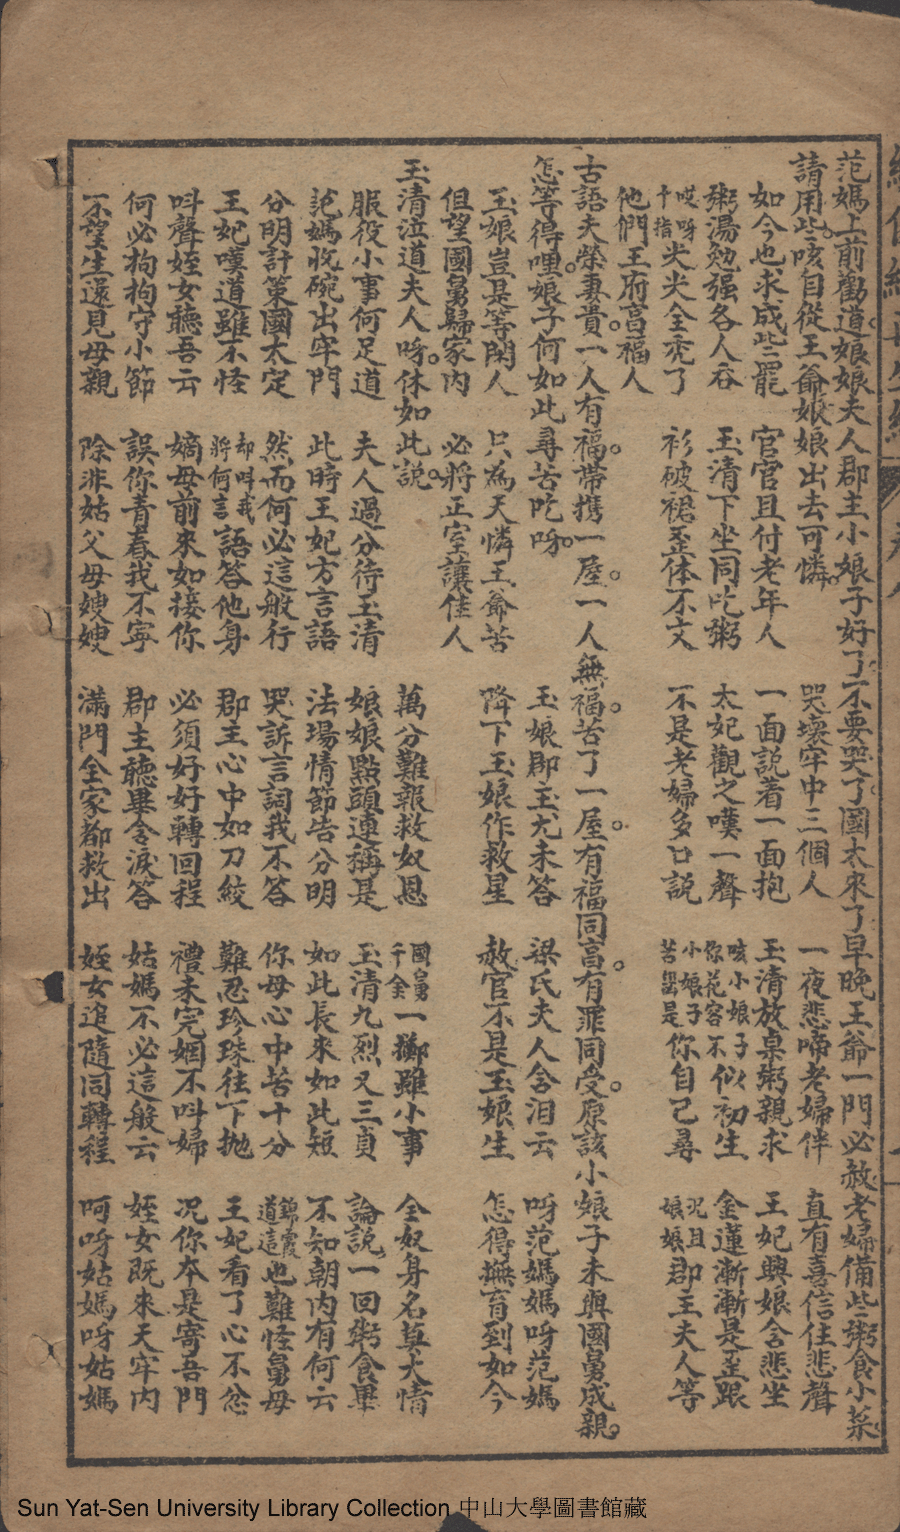 范媽上前勸道。娘娘夫人郡主小娘子好了。不要哭了。國太來了。早晚王爺一門必赦。老婦備些粥食小菜。
請用些。咳自從王爺娘娘出去可憐。 哭壞牢中三個人 一夜悲啼老婦伴 直有喜信住悲聲
如今也求成些罷 官官且付老年人 一面說着一面抱 玉清放桌粥親求 王妃與娘含悲坐
粥湯勉强各人吞 玉清下坐同吃粥 太妃觀之嘆一聲 咳小娘子你花容不似初生 金蓮漸漸是歪跟
哎呀十指光光全禿了 衫破裙歪体不文 不是老婦多口說 小娘子苦噐是你自己尋 况且娘娘郡主夫人等
他們王府富福人
古語夫榮妻貴。一人有福。帶携一屋。一人無福。苦了一屋。有福同富。有罪同受。原該小娘子未與國舅成親。
怎等得哩。娘子何如此尋苦吃呀。 玉娘郡玉尤未答 梁氏夫人含泪云 呀范媽媽呀范媽
玉娘豈是等閑人 只為天憐王爺苦 降下玉娘作救星 赦官不是玉娘生 怎得撫育到如今
但望國舅歸家內 必將正室讓佳人
玉清泣道夫人呀。休如此說。 萬分難報救奴恩 國舅千金一擲雖小事 全奴身名莫大情
服役小事何足道 夫人過分待玉清 娘娘點頭連稱是 玉清九烈又三貞 論說一回粥食畢
范媽收碗出牢門 此時王妃方言語 法場情節告分明 如此長來如此短 不知朝內有何云
分明計策國太定 然而何必這般行 哭訴言詞我不答 你母心中苦十分 錦霞道這也難怪舅母
王妃嘆道雖不怪 却呌我將何言語答他身 郡主心中如刀絞 難忍珍珠往下抛 王妃看了心不忿
呌聲姪女聽吾云 嫡母前來如接你 必須好好轉回程 禮未完姻不呌婦 况你本是寄吾門
何必拘拘守小節 誤你青春我不寜 郡主聽畢含淚答 姑媽不必這般云 姪女既來天牢內
不望生還見母親 除非姑父母嫂嫂 滿門全家都救出 姪女追隨同轉程 呵呀姑媽呀姑媽
Sun Yat-Sen University Library Collection 中山大學圖書館藏